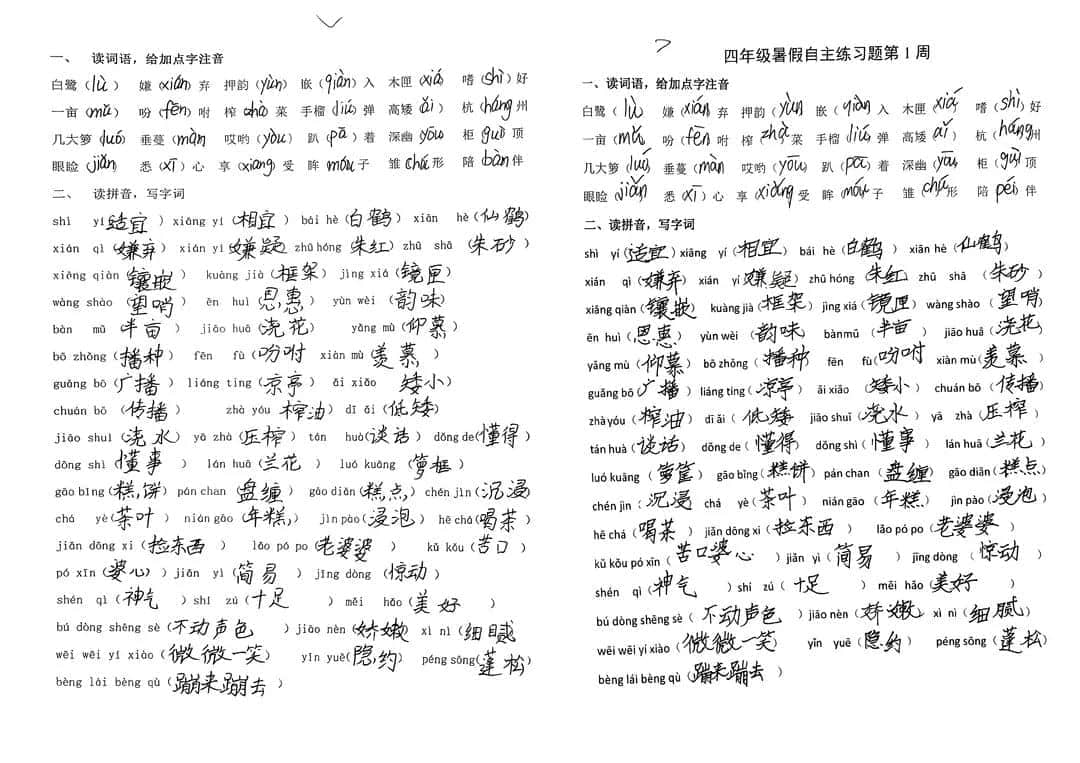 一、 读词语，给加点字注音
白鹭（lù） 嫌（xián）弃 押韵（yùn） 嵌（qiàn）入 木匣（xiá） 嗜（shì）好
一亩（mǔ） 吩（fēn）咐 榨（zhà）菜 手榴（liú）弹 高矮（ǎi） 杭（háng）州
几大箩（luó） 垂蔓（màn） 哎哟（yōu） 趴（pā）着 深幽（yōu） 柜（guì）顶
眼睑（jiǎn） 悉（xī）心 享（xiǎng）受 眸（móu）子 雏（chú）形 陪（bàn）伴
二、 读拼音，写字词
shì yí（适宜）xiāng yí（相宜）bái hè（白鹤）xiān hè（仙鹤）
xián qì（嫌弃）xián yí（嫌疑）zhū hóng（朱红）zhū shā（朱砂）
xiāng qiàn（镶嵌） kuàng jià（框架）jìng xiá（镜匣）
wàng shào（望哨） ēn huì（恩惠） yùn wèi（韵味）
bàn mǔ（半亩） jiāo huā（浇花） yǎng mù（仰慕）
bō zhǒng（播种） fēn fù（吩咐） xiàn mù（羡慕）
guǎng bō（广播） liáng tíng（凉亭） ǎi xiǎo（矮小）
chuán bō（传播） zhà yóu（榨油）dī ǎi（低矮）
jiāo shuǐ（浇水）yā zhà（压榨）tán huà（谈话）dǒng de（懂得）
dǒng shì（懂事） lán huā（兰花） luó kuāng（箩框）
gāo bǐng（糕饼）pán chan（盘缠）gāo diǎn（糕点）chén jìn（沉浸）
chá yè（茶叶） nián gāo（年糕） jìn pào（浸泡）hē chá（喝茶）
jiǎn dōng xi（捡东西） lǎo pó po（老婆婆） kǔ kǒu（苦口）
pó xīn（婆心）jiǎn yì（简易） jīng dòng（惊动）
shén qì（神气）shí zú（十足） měi hǎo（美好）
bú dòng shēng sè（不动声色）jiāo nèn（娇嫩）xì nì（细腻）
wēi wēi yí xiào（微微一笑） yǐn yuē（隐约） péng sōng（蓬松）
bèng lái bèng qù（蹦来蹦去）
四年级暑假自主练习题第1周
一、读词语，给加点字注音
白鹭（lù） 嫌（xián）弃 押韵（yùn） 嵌（qiàn）入 木匣（xiá） 嗜（shì）好
一亩（mǔ） 吩（fēn）咐 榨（zhà）菜 手榴（liú）弹 高矮（ǎi） 杭（háng）州
几大箩（luó） 垂蔓（màn） 哎哟（yōu） 趴（pā）着 深幽（yōu） 柜（guì）顶
眼睑（jiǎn） 悉（xī）心 享（xiǎng）受 眸（móu）子 雏（chú）形 陪（péi）伴
二、读拼音，写字词
shì yí（适宜）xiāng yí（相宜） bái hè（白鹤）xiān hè（仙鹤）
xián qì（嫌弃） xián yí（嫌疑）zhū hóng（朱红） zhū shā（朱砂）
xiāng qiàn（镶嵌） kuàng jià（框架）jìng xiá（镜匣）wàng shào（望哨）
ēn huì（恩惠） yùn wèi（韵味） bànmǔ（半亩） jiāo huā（浇花）
yǎng mù（仰慕） bō zhǒng（播种） fēn fù（吩咐） xiàn mù（羡慕）
guǎng bō（广播）liáng tíng（凉亭） ǎi xiǎo（矮小） chuán bō（传播）
zhà yóu（榨油）dī ǎi（低矮） jiāo shuǐ（浇水） yā zhà（压榨）
tán huà（谈话） dǒng de（懂得） dǒng shì（懂事） lán huā（兰花）
luó kuāng（箩筐） gāo bǐng（糕饼）pán chan（盘缠） gāo diǎn（糕点）
chén jìn（沉浸） chá yè（茶叶） nián gāo（年糕） jìn pào（浸泡）
hē chá（喝茶） jiǎn dōng xi（捡东西） lǎo pó po（老婆婆）
kǔ kǒu pó xīn（苦口婆心） jiǎn yì（简易） jīng dòng（惊动）
shén qì（神气） shí zú（十足） měi hǎo（美好）
bú dòng shēng sè（不动声色）jiāo nèn（娇嫩）xì nì（细腻）
wēi wēi yí xiào（微微一笑） yǐn yuē（隐约） péng sōng（蓬松）
bèng lái bèng qù（蹦来蹦去）